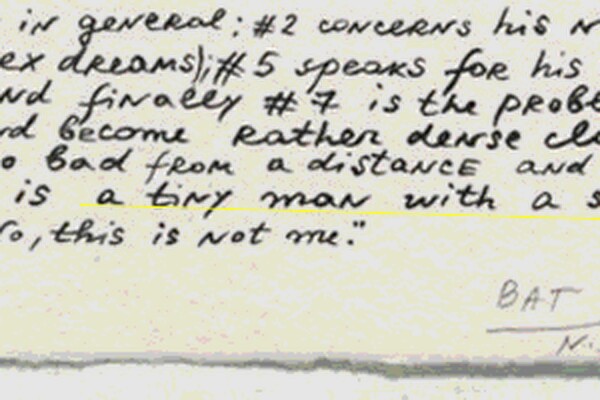 in general; #2 concerns his
ex dreams); #5 speaks for his
nd finally #7 is the probl
rd become rather dense cl
o bad from a distance and
is a tiny man with a s
o, this is not me."
BAT
Ni